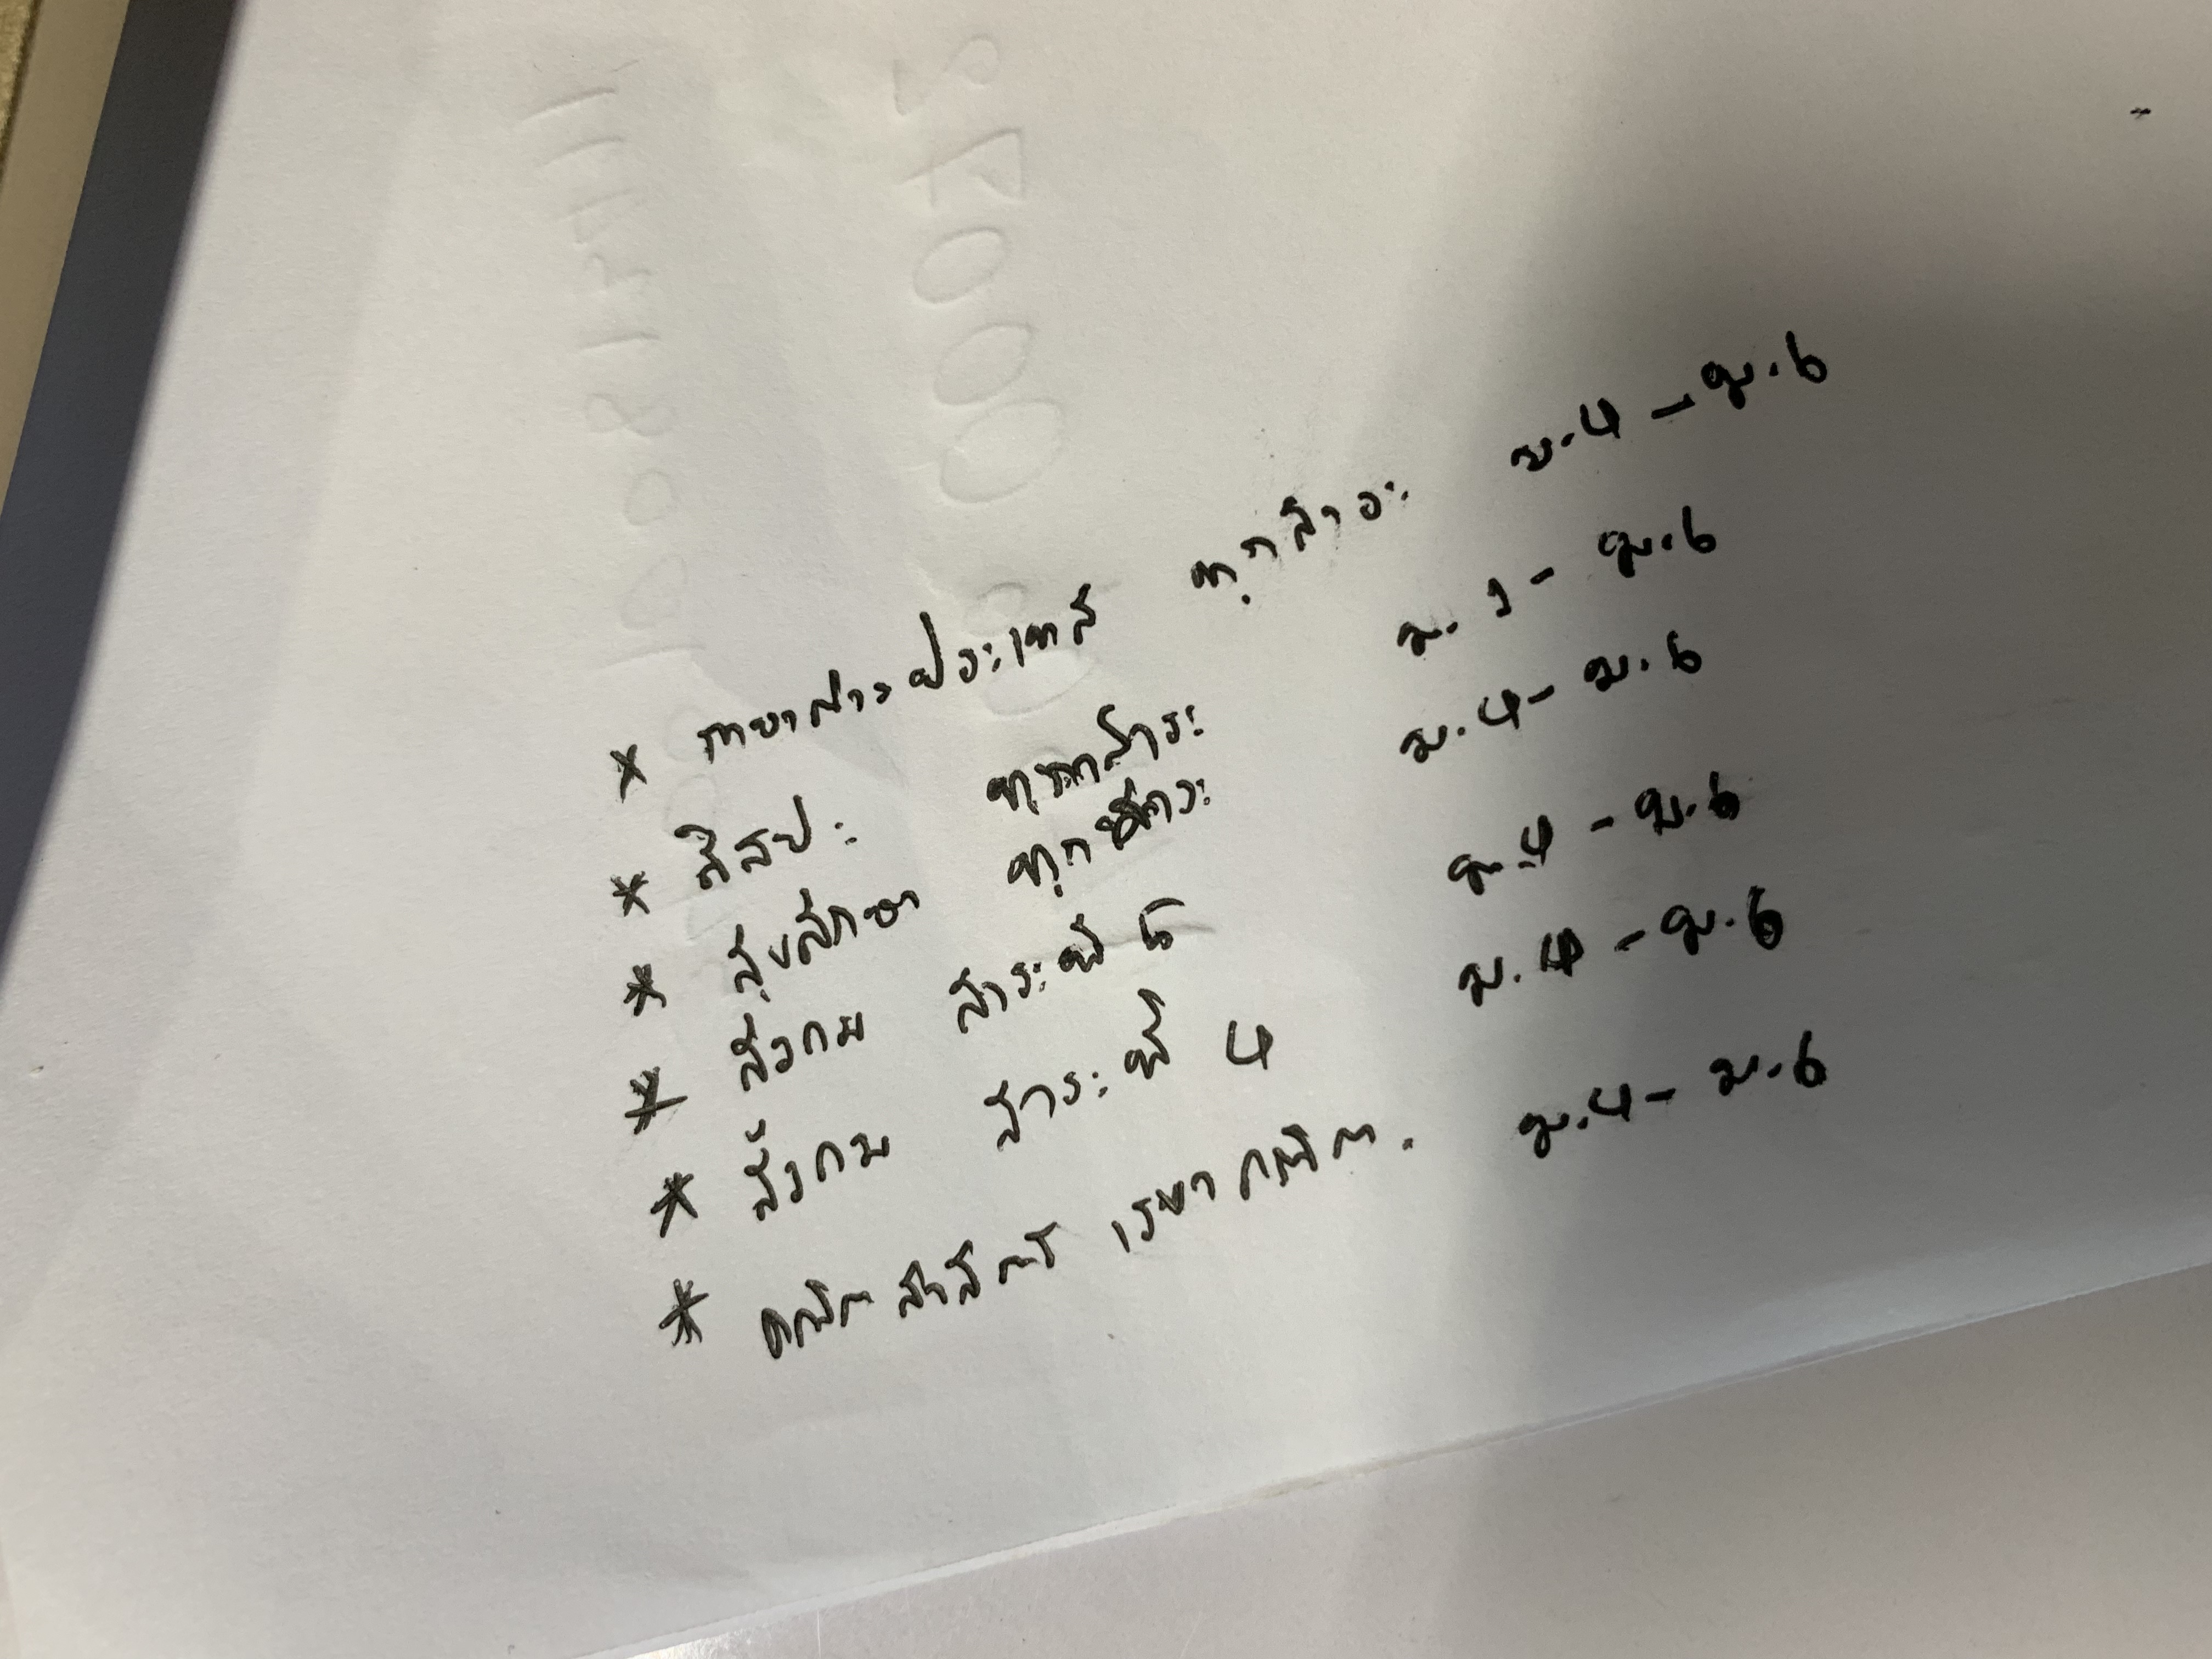 * ภาษาต่างประเทศ ทุกสาระ ม.4 - ม.6
* ศิลปะ ทุกสาระ ม. 1 - ม.6
* สุขศึกษา ทุกสาระ ม.4 - ม.6
* สังคม สาระที่ 5 ม.4 - ม.6
* สังคม สาระที่ 4 ม.4 - ม.6
* คณิตศาสตร์ เรขาคณิต. ม.4 - ม.6